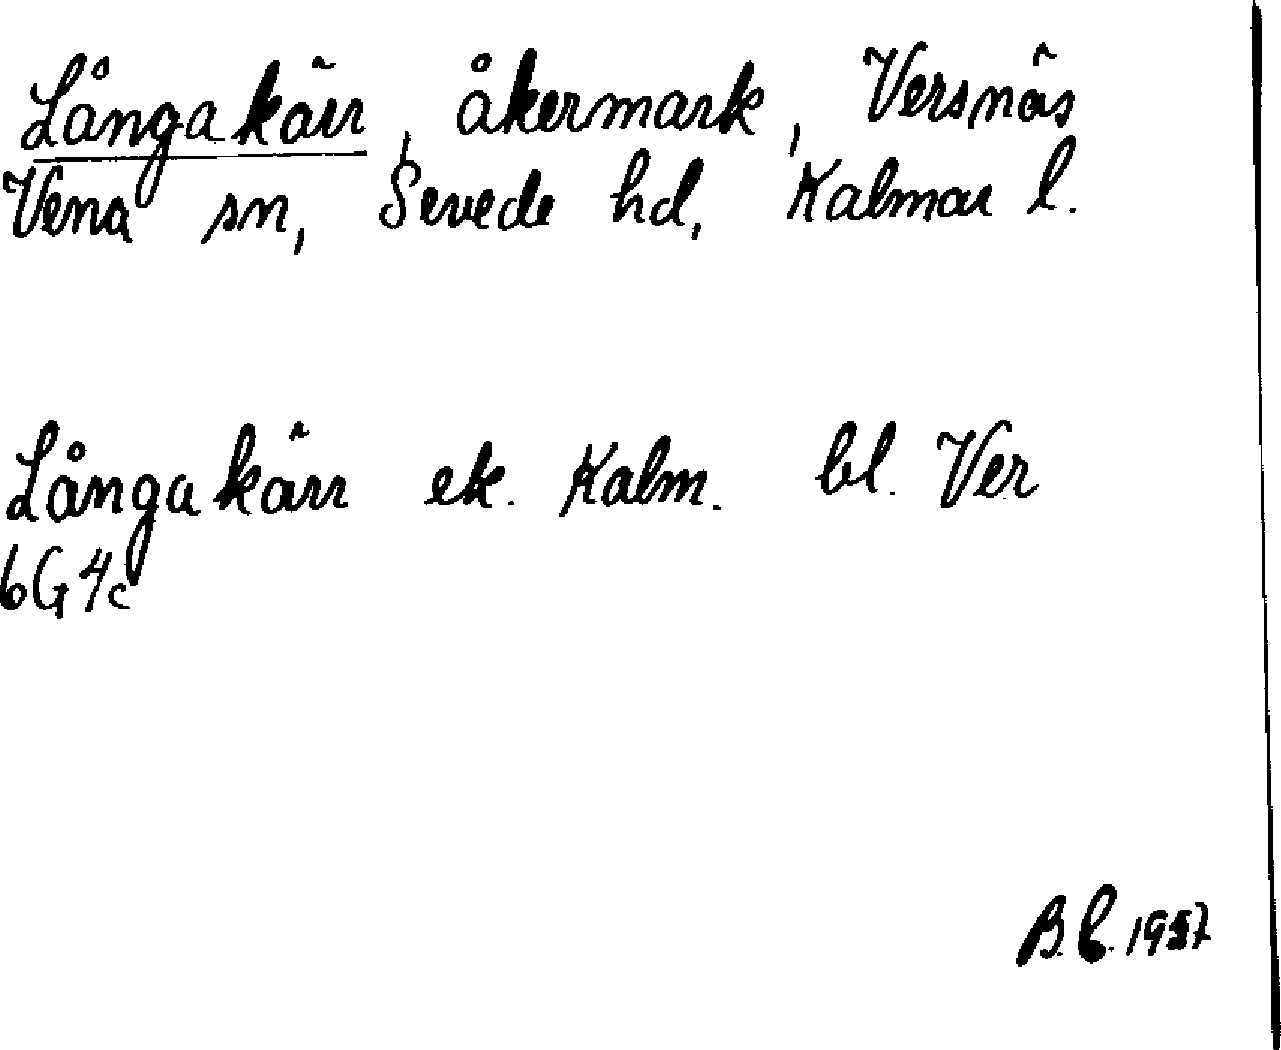 Långakärr, åkermark, Versnäs
Vena sn, Sevede hd, Kalmar l.
Långakärr ek. Kalm. bl. Ver
6G4c